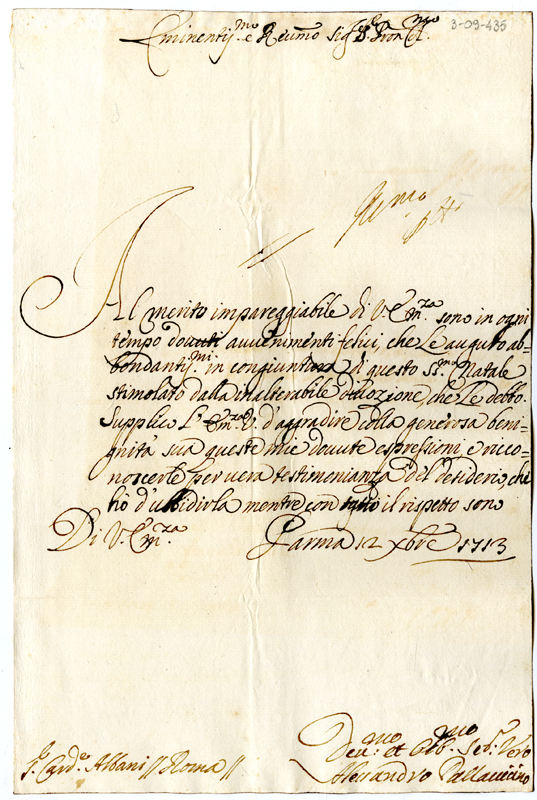 3-09-435
Eminentis.mo e Reumo Sig.r P.ron Col.mo
Al merito impareggiabile di V. Em.za sono in ogni
tempo douuti auuenimenti felici, che Le auguro ab-
bondantis.mi in congiuntura di questo SS.mo Natale
stimolato dalla inalterabile diuozione, che Le debbo.
Supplico L' Em.za V. d'aggradire colla generosa beni-
gnità sua queste mie douute espressioni, e ricco-
noscerle per vera testimonianza del desiderio, che
hò d'ubbidirla mentre con tutto il rispetto sono
Di V. Em.za Parma 12 Xbre 1713
S.r Card.le Albani // Roma //
Deu.mo et Obb.mo Se.r Vero
Alessandro Pallauicino